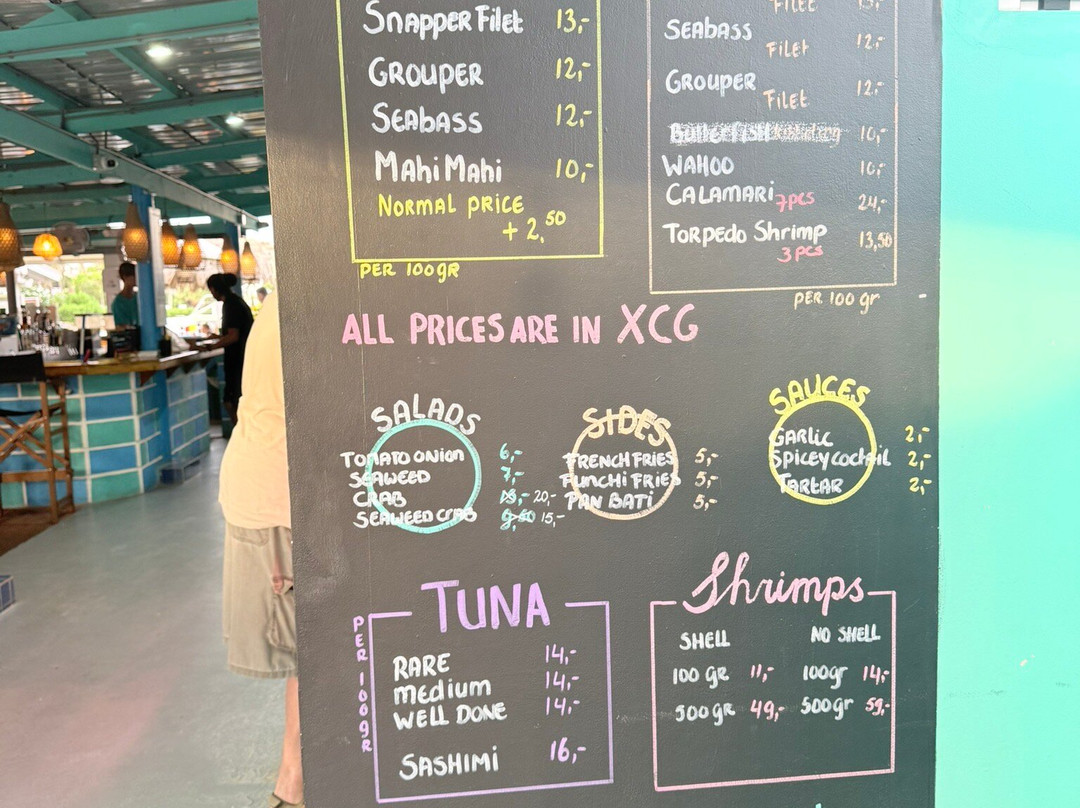 Snapper Filet 13,-
Grouper 12,-
Seabass 12,-
Mahi Mahi 10,-
Normal price
+ 2,50
per 100gr
Filet 13,-
Seabass Filet 12,-
Grouper Filet 12,-
Butterfish 10,-
Wahoo 10,-
Calamari 7pcs 24,-
Torpedo Shrimp 13,50
3 pcs
per 100 gr
ALL PRICES ARE IN XCG
SALADS
Tomato onion 6,-
Seaweed 7,-
Crab 18,- 20,-
Seaweed Crab 9,50 15,-
SIDES
French Fries 5,-
Funchi Fries 5,-
Pan Bati 5,-
SAUCES
Garlic 2,-
Spicey cocktail 2,-
Tartar 2,-
TUNA
PER 100gR
Rare 14,-
medium 14,-
Well Done 14,-
Sashimi 16,-
Shrimps
Shell No Shell
100 gr 11,- 100gr 14,-
500 gr 49,- 500gr 59,-